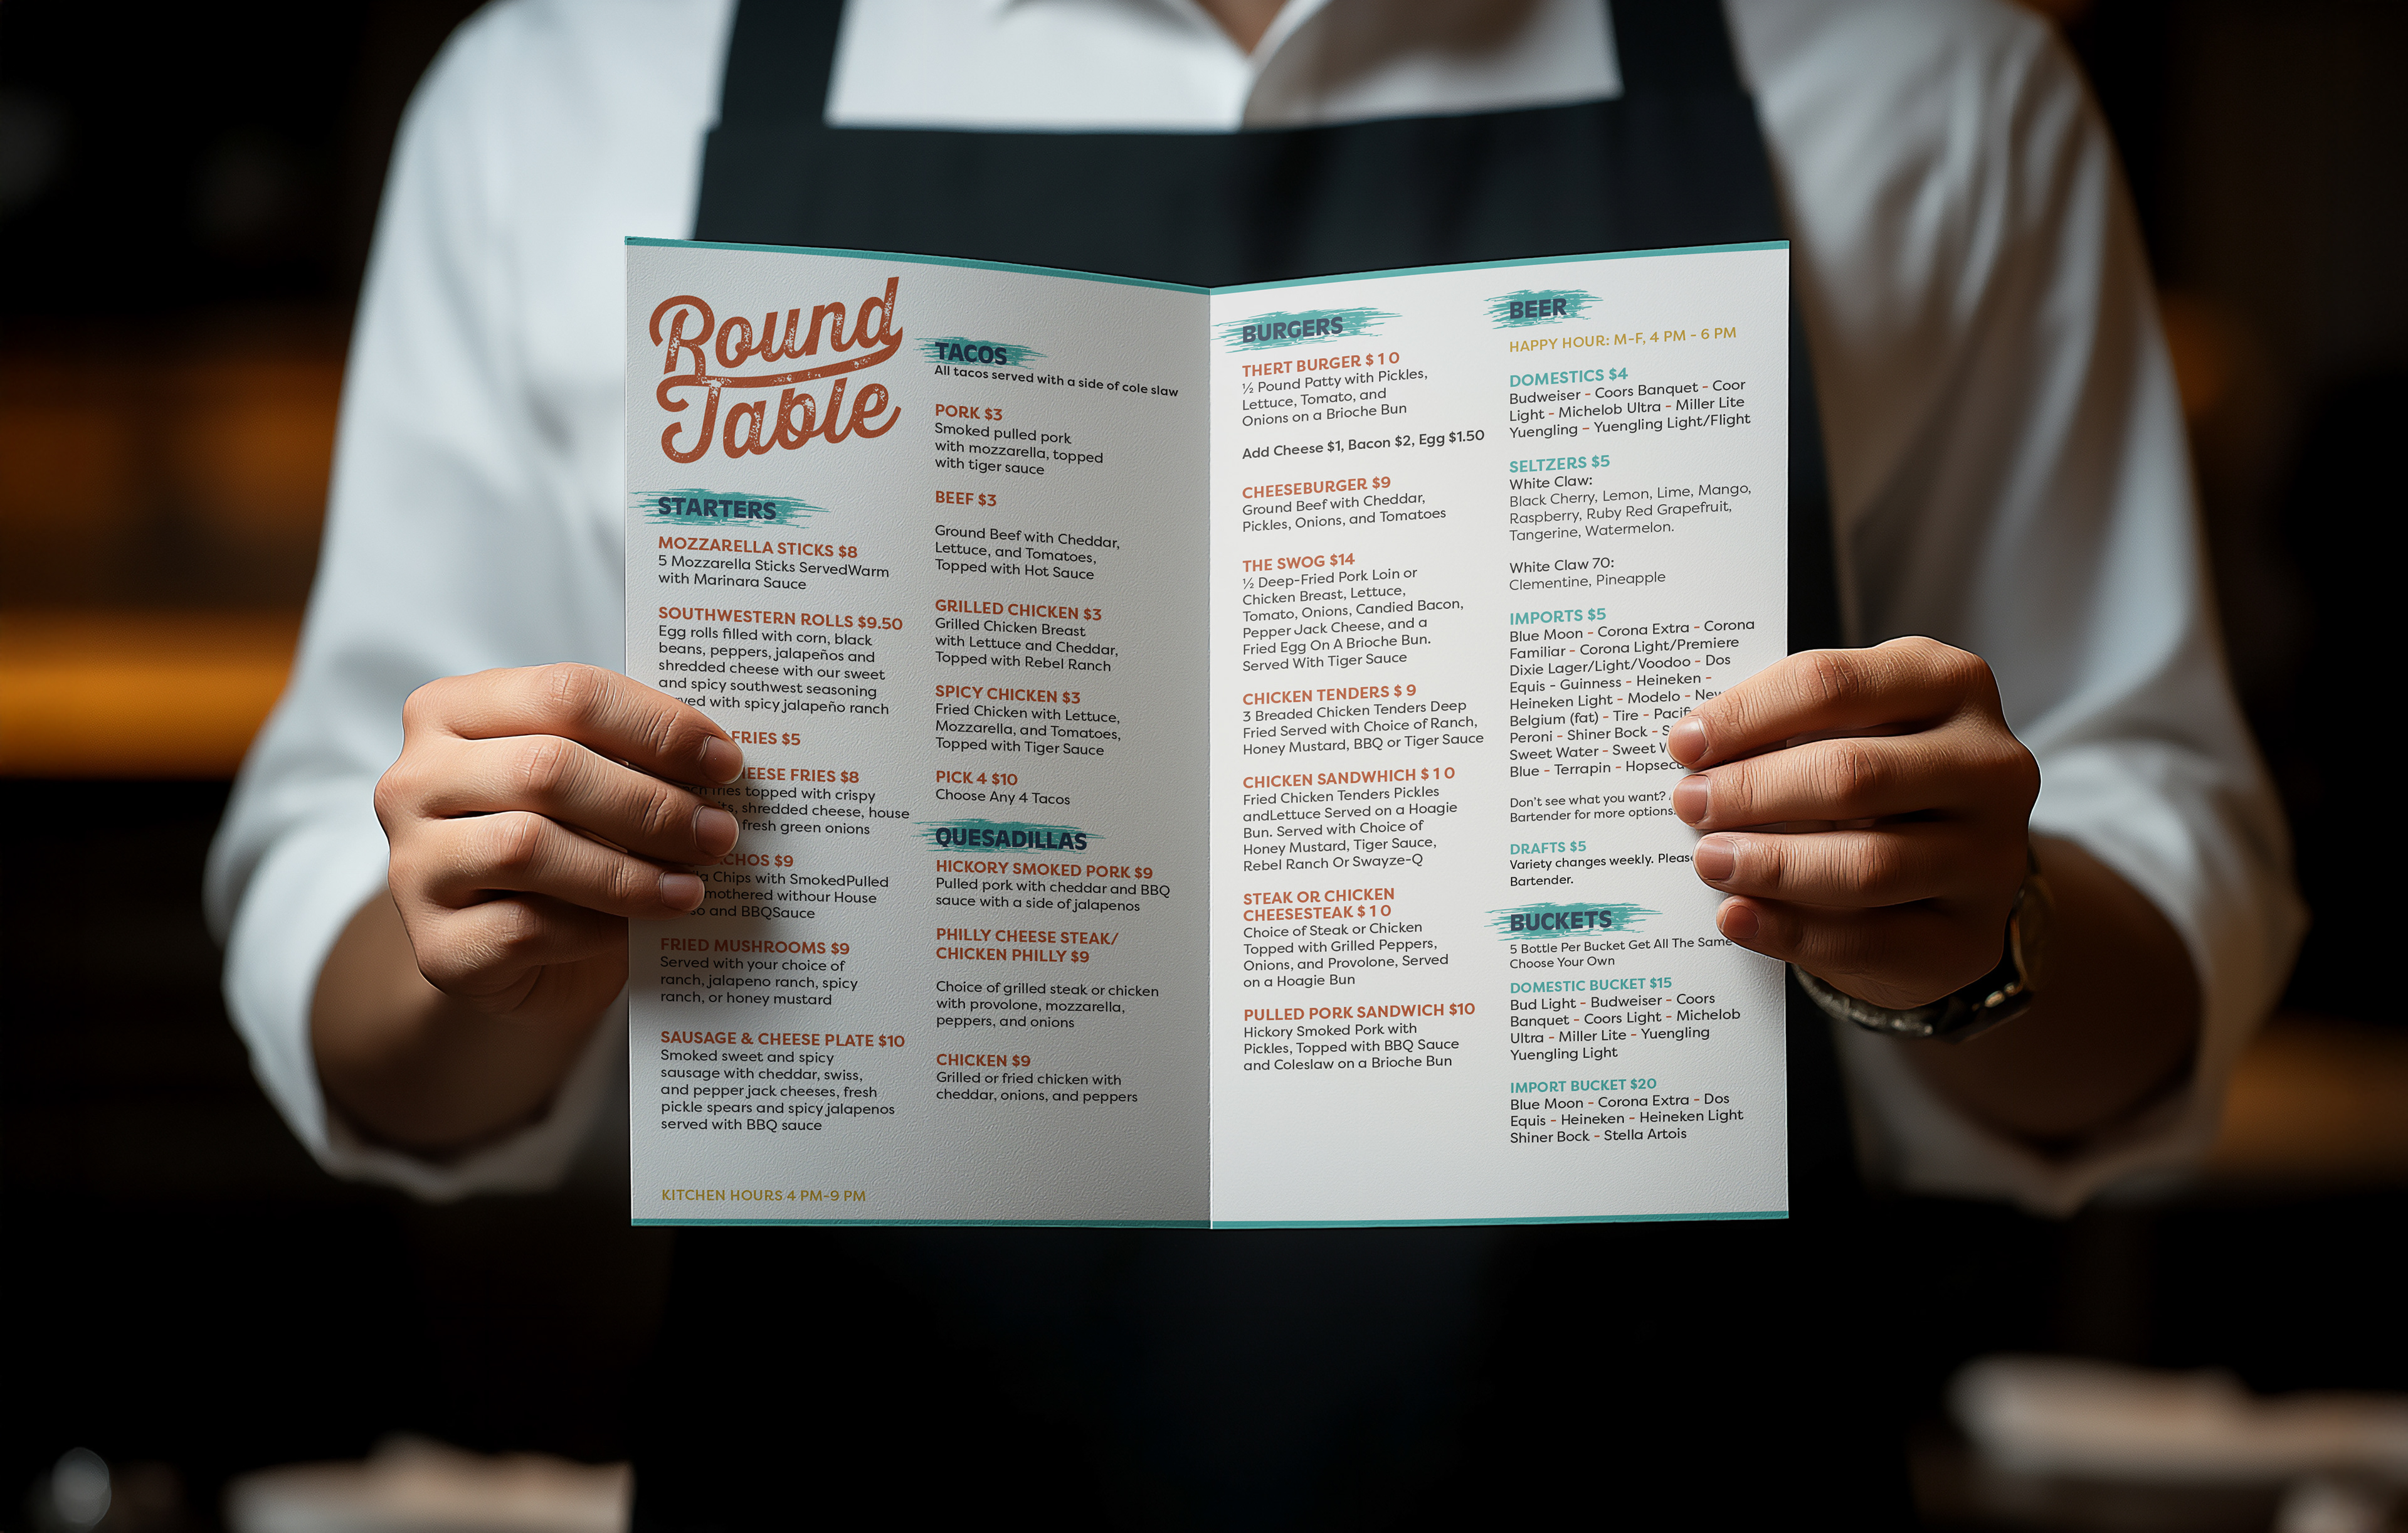 Round
Table
STARTERS
MOZZARELLA STICKS $8
5 Mozzarella Sticks ServedWarm
with Marinara Sauce
SOUTHWESTERN ROLLS $9.50
Egg rolls filled with corn, black
beans, peppers, jalapeños and
shredded cheese with our sweet
and spicy southwest seasoning
with spicy jalapeño ranch
FRIES $5
FRIES $8
topped with crispy
shredded cheese, house
fresh green onions
$9
Chips with SmokedPulled
withour House
and BBQSauce
FRIED MUSHROOMS $9
Served with your choice of
ranch, jalapeno ranch, spicy
ranch, or honey mustard
SAUSAGE & CHEESE PLATE $10
Smoked sweet and spicy
sausage with cheddar, swiss,
and pepper jack cheeses, fresh
pickle spears and spicy jalapenos
served with BBQ sauce
KITCHEN HOURS 4 PM-9 PM
TACOS
All tacos served with a side of cole slaw
PORK $3
Smoked pulled pork
with mozzarella, topped
with tiger sauce
BEEF $3
Ground Beef with Cheddar,
Lettuce, and Tomatoes,
Topped with Hot Sauce
GRILLED CHICKEN $3
Grilled Chicken Breast
with Lettuce and Cheddar,
Topped with Rebel Ranch
SPICY CHICKEN $3
Fried Chicken with Lettuce,
Mozzarella, and Tomatoes,
Topped with Tiger Sauce
PICK 4 $10
Choose Any 4 Tacos
QUESADILLAS
HICKORY SMOKED PORK $9
Pulled pork with cheddar and BBQ
sauce with a side of jalapenos
PHILLY CHEESE STEAK/
CHICKEN PHILLY $9
Choice of grilled steak or chicken
with provolone, mozzarella,
peppers, and onions
CHICKEN $9
Grilled or fried chicken with
cheddar, onions, and peppers
BURGERS
THERT BURGER $ 1 0
½ Pound Patty with Pickles,
Lettuce, Tomato, and
Onions on a Brioche Bun
Add Cheese $1, Bacon $2, Egg $1.50
CHEESEBURGER $9
Ground Beef with Cheddar,
Pickles, Onions, and Tomatoes
THE SWOG $14
½ Deep-Fried Pork Loin or
Chicken Breast, Lettuce,
Tomato, Onions, Candied Bacon,
Pepper Jack Cheese, and a
Fried Egg On A Brioche Bun.
Served With Tiger Sauce
CHICKEN TENDERS $ 9
3 Breaded Chicken Tenders Deep
Fried Served with Choice of Ranch,
Honey Mustard, BBQ or Tiger Sauce
CHICKEN SANDWHICH $ 1 0
Fried Chicken Tenders Pickles
andLettuce Served on a Hoagie
Bun. Served with Choice of
Honey Mustard, Tiger Sauce,
Rebel Ranch Or Swayze-Q
STEAK OR CHICKEN
CHEESESTEAK $ 1 0
Choice of Steak or Chicken
Topped with Grilled Peppers,
Onions, and Provolone, Served
on a Hoagie Bun
PULLED PORK SANDWICH $10
Hickory Smoked Pork with
Pickles, Topped with BBQ Sauce
and Coleslaw on a Brioche Bun
BEER
HAPPY HOUR: M-F, 4 PM - 6 PM
DOMESTICS $4
Budweiser - Coors Banquet - Coor
Light - Michelob Ultra - Miller Lite
Yuengling - Yuengling Light/Flight
SELTZERS $5
White Claw:
Black Cherry, Lemon, Lime, Mango,
Raspberry, Ruby Red Grapefruit,
Tangerine, Watermelon.
White Claw 70:
Clementine, Pineapple
IMPORTS $5
Blue Moon - Corona Extra - Corona
Familiar - Corona Light/Premiere
Dixie Lager/Light/Voodoo - Dos
Equis - Guinness - Heineken -
Heineken Light - Modelo - New
Belgium (fat) - Tire -
Peroni - Shiner Bock -
Sweet Water - Sweet
Blue - Terrapin -
Don't see what you want?
Bartender for more options.
DRAFTS $5
Variety changes weekly. Please
Bartender.
BUCKETS
5 Bottle Per Bucket Get All The Same
Choose Your Own
DOMESTIC BUCKET $15
Bud Light - Budweiser - Coors
Banquet - Coors Light - Michelob
Ultra - Miller Lite - Yuengling
Yuengling Light
IMPORT BUCKET $20
Blue Moon - Corona Extra - Dos
Equis - Heineken - Heineken Light
Shiner Bock - Stella Artois